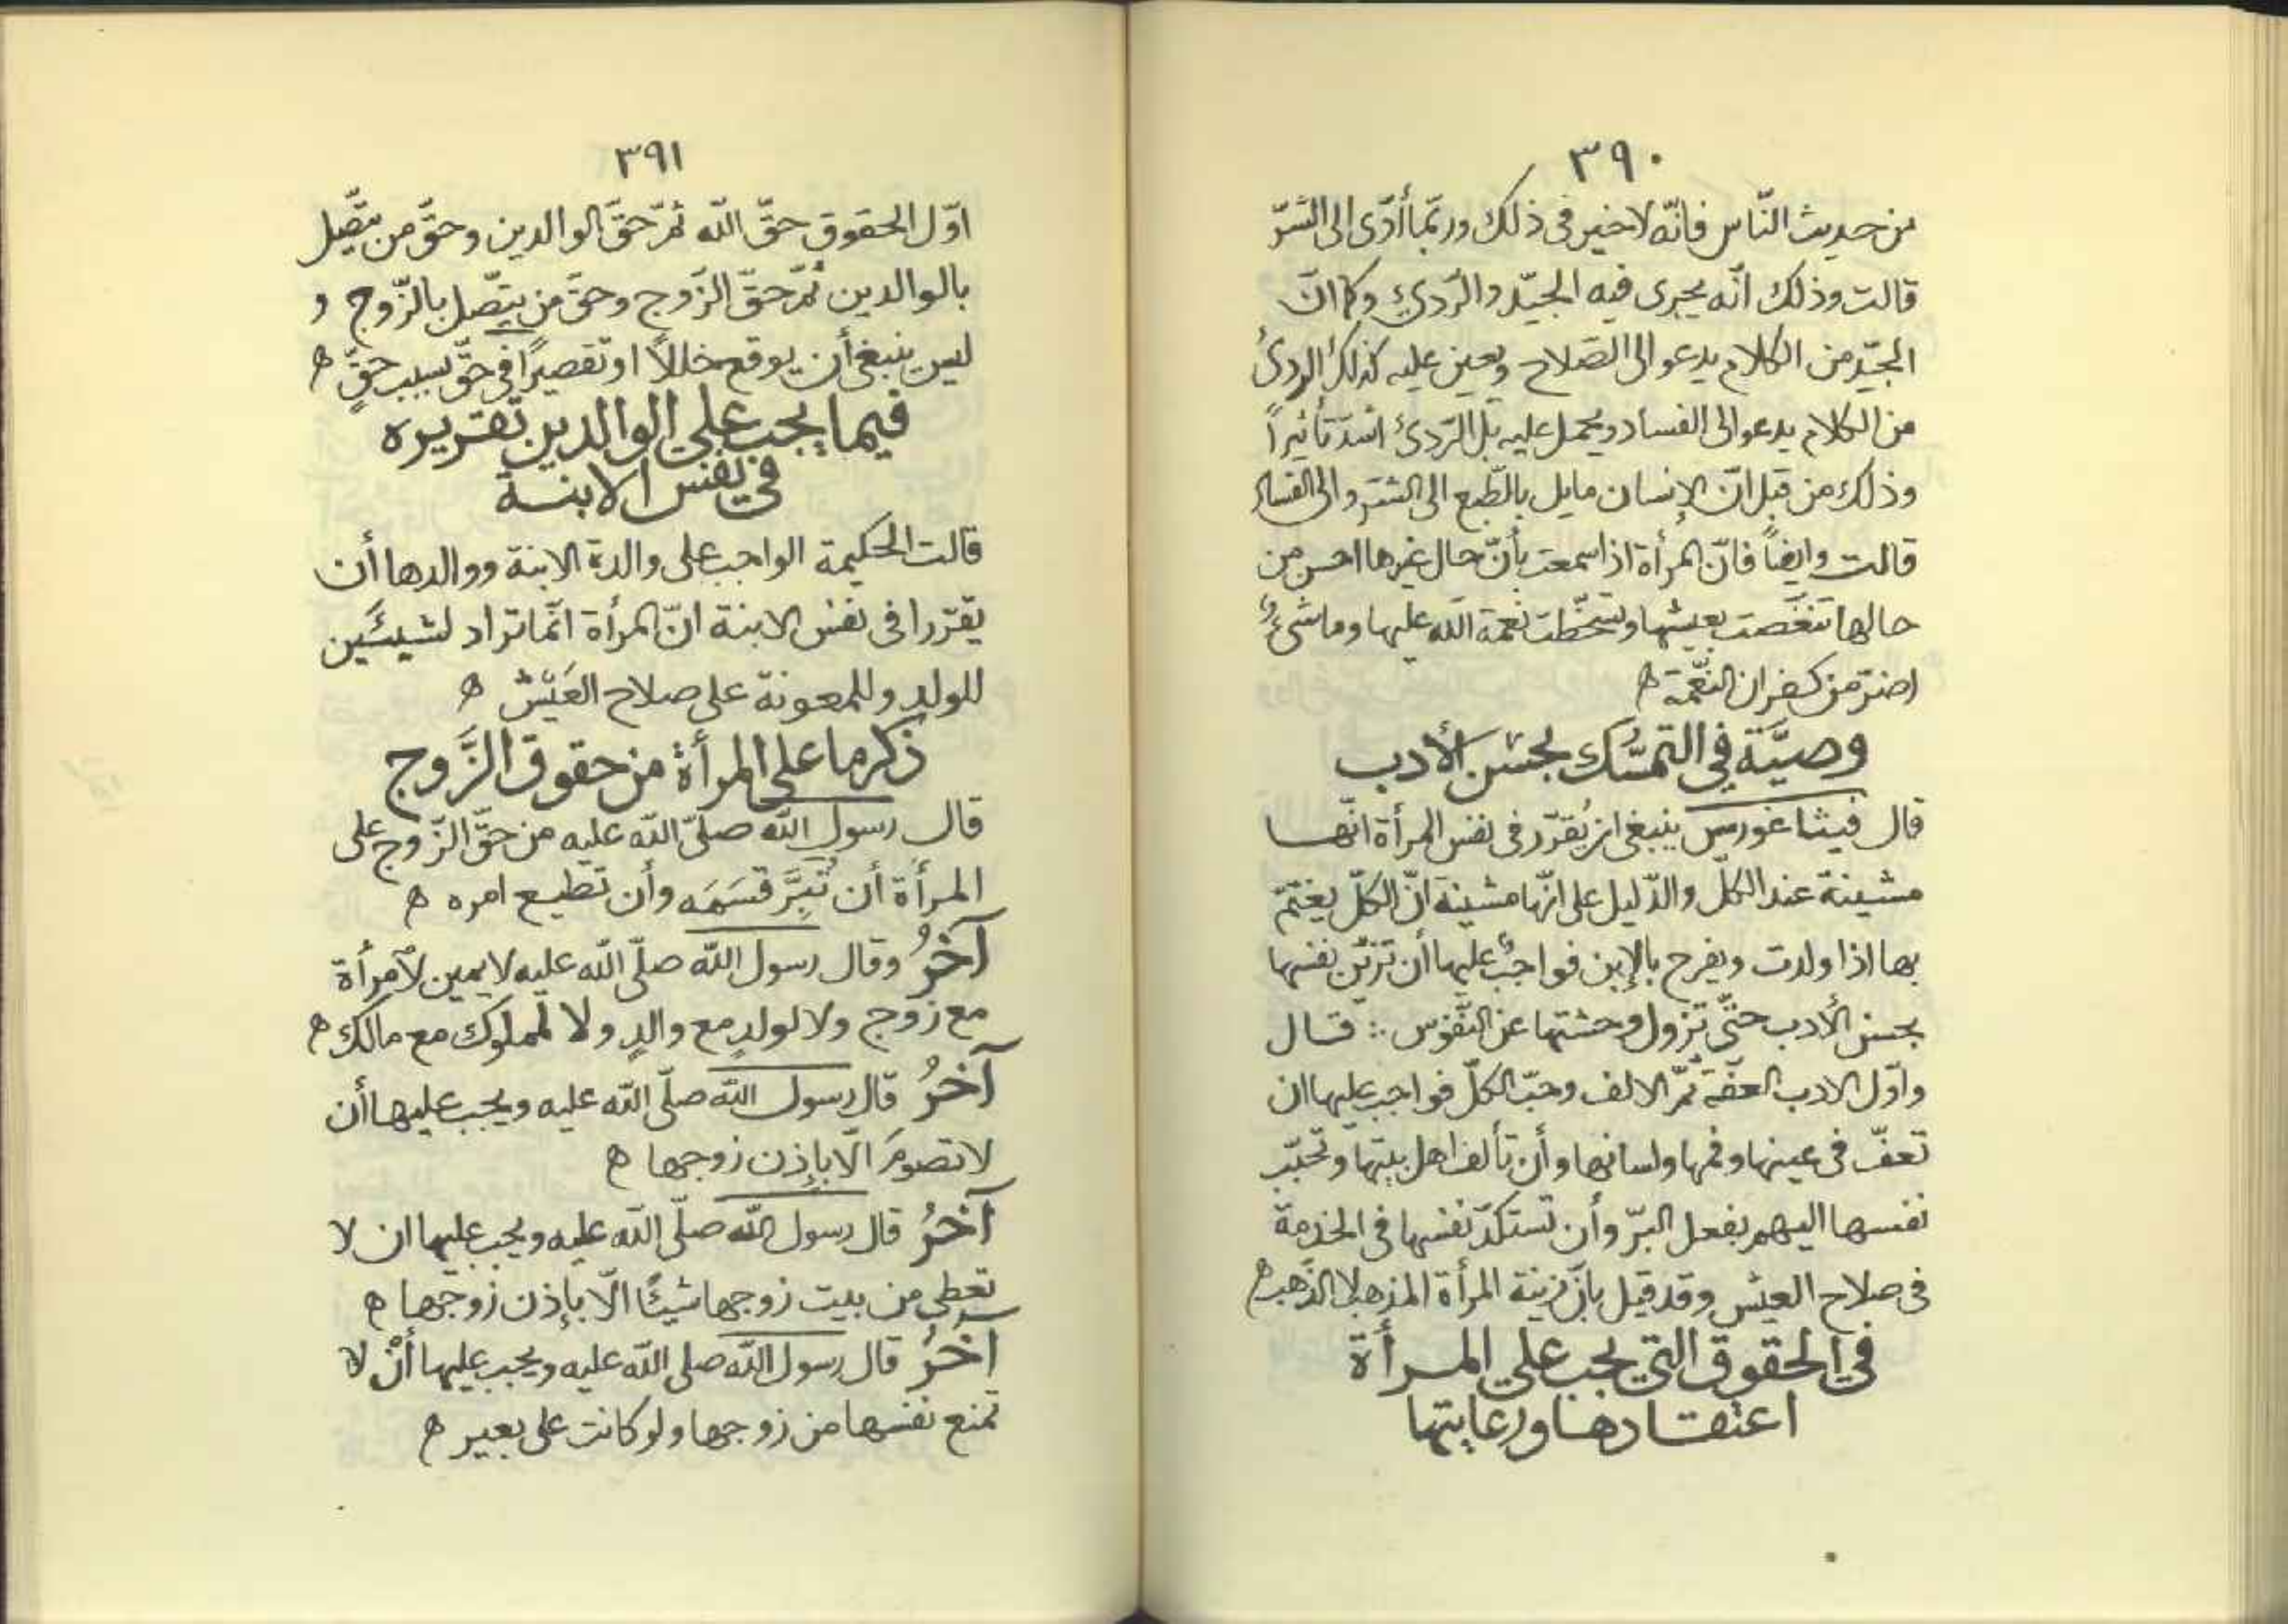 ٣٩٠
من حديث النّاس فانّه لا خير فى ذلك وربّما أدّى الى الشرّ
قالت وذلك انّه يجرى فيه الجيّد والرّديئ وكما انّ
الجيّد من الكلام يدعو الى الصّلاح ويعين عليه كذلك الردئ
من الكلام يدعو الى الفساد ويحمل عليه بل الرّدئ اشدّ تأثيراً
وذلك من قبل انّ الإنسان مايل بالطّبع الى الشرّ والى الفساد
قالت وايضاً فانّ المرأة اذا سمعت بأنّ حال غيرها احسن من
حالها تنغّصت بعيشها وتسخّطت نعمة الله عليها وما شىءٌ
اضرّ من كفران النّعمة ه
وصيَّة في التمسُّك بحسن الأدب
قال فيثاغورس ينبغى ان يُقرّر فى نفس المرأة انّها
مشينة عند الكلّ والدّليل على انّها مشينة انّ الكلّ يغتمّ
بها اذا ولدت ويفرح بالإبن فواجبٌ عليها أن تزيّن نفسها
بحسن الأدب حتّى تزول وحشتها عن النّفوس ∴ قال
واوّل الادب العفّة ثمّ الالف وحبّ الكلّ فواجب عليها ان
تعفّ فى عينها وفمها ولسانها وأن تألف اهل بيتها وتحبّب
نفسها اليهم بفعل البرّ وأن تستكدّ نفسها فى الخدمة
فى صلاح العيش وقد قيل بأنّ زينة المرأة المذهب لا الذّهب ه
في الحقوق التي يجب علي المرأة
اعتقادها ورعايتها
٣٩١
اوّل الحقوق حقّ الله ثمّ حقّ الوالدين وحقّ من يتّصل
بالوالدين ثمّ حقّ الزّوج وحقّ من يتّصل بالزّوج و
ليس ينبغى أن يوقع خللاً او تقصيرًا فى حقّ بسبب حقٍّ ه
فيما يجب علي الوالدين تقريره
في نفس الابنة
قالت الحكيمة الواجب على والدة الابنة ووالدها أن
يقرّرا فى نفس الابنة انّ المرأة انّما تراد لشيئَين
للولد وللمعونة على صلاح العَيْش ه
ذكر ما على المرأة من حقوق الزَّوج
قال رسول الله صلّى الله عليه من حقّ الزّوج على
المرأة أن تُبِرَّ قَسَمَه وأن تطيع امره ه
آخَرُ وقال رسول الله صلّى الله عليه لا يمين لأمرأة
مع زوج ولا لولدٍ مع والدٍ ولا لمملوك مع مالك ه
آخَرُ قال رسول الله صلّى الله عليه ويجب عليها أن
لا تصومَ الّا بإذن زوجها ه
آخَرُ قال رسول الله صلّى الله عليه ويجب عليها ان لا
تعطى من بيت زوجها شيئًا الّا بإذن زوجها ه
آخَرُ قال رسول الله صلى الله عليه ويجب عليها أنْ لا
تمنع نفسها من زوجها ولو كانت على بعير ه